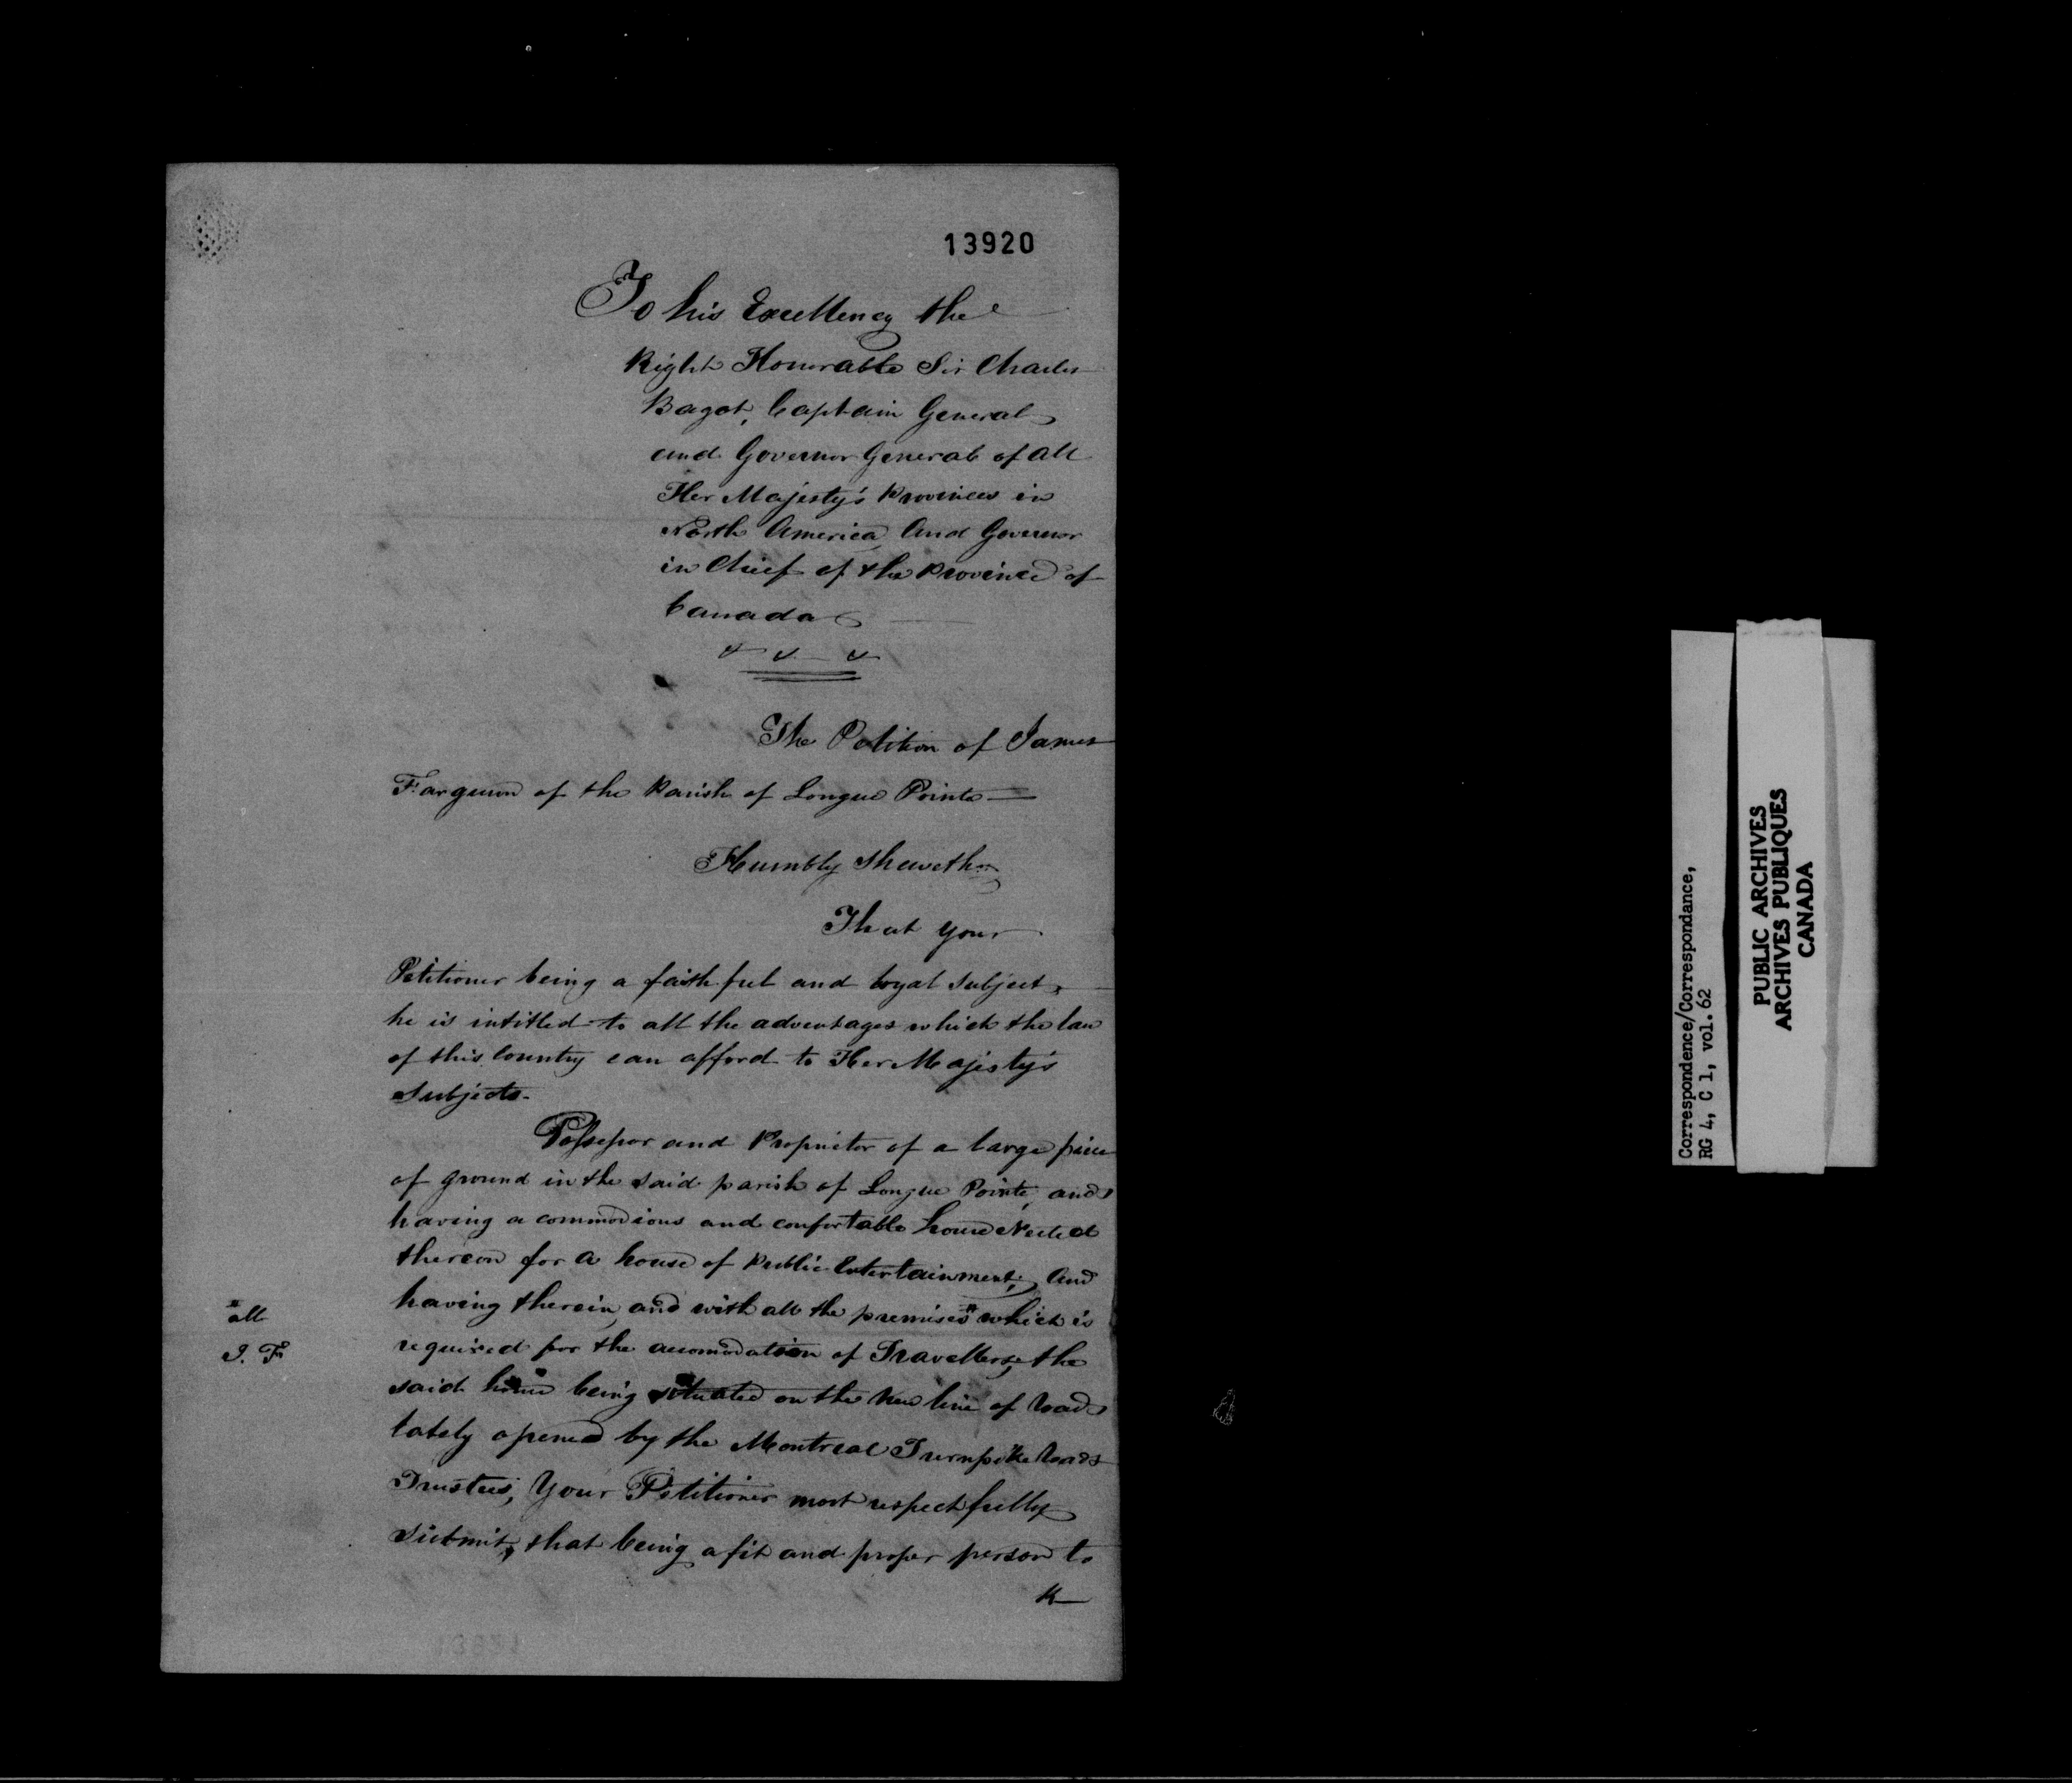 13920
To his Excellency the
Right Honorable Sir Charles
Bagot, Captain General
and Governor General of all
Her Majesty's Provinces in
North America And Governor
in Chief of the Province of
Canada
The Petition of James
Farguson of the Parish of Longue Pointe
Humbly Sheweth
That your
Petitioner being a faithful and loyal subject,
he is intitled to all the advantages which the law
of this Country can afford to Her Majesty's
Subjects.
Possessor and Proprietor of a large piece
of ground in the said parish of Longue Pointe, and
having a commodious and confortable house erected
thereon for a house of Public Entertainment, And
having therein, and with all the premises # which is
# all
J. F
required for the accomodation of Travellers, the
said house being situated on the New line of road
lately opened by the Montreal Turnpike Roads
Trustees, Your Petitioner most respectfully
Submit, that being a fit and proper person to
K
Correspondence/Correspondance,
RG 4, C 1, vol. 62
PUBLIC ARCHIVES
ARCHIVES PUBLIQUES
CANADA